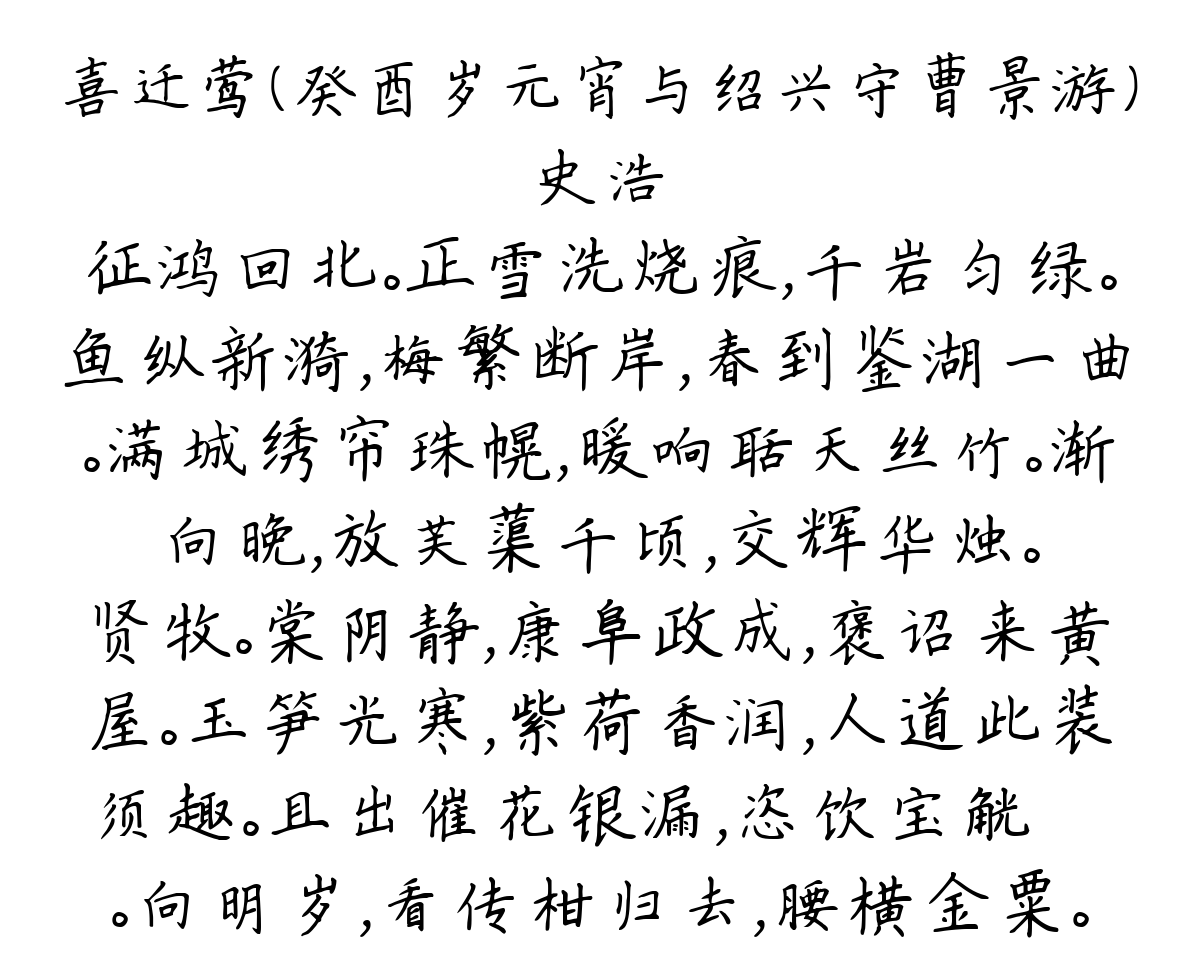 喜迁莺(癸酉岁元宵与绍兴守曹景游)
史浩
征鸿回北。正雪洗烧痕,千岩匀绿。
鱼纵新漪,梅繁断岸,春到鉴湖一曲
。满城绣帘珠幌,暖响聒天丝竹。渐
向晚,放芙蕖千顷,交辉华烛。
贤牧。棠阴静,康阜政成,褒诏来黄
屋。玉笋光寒,紫荷香润,人道此装
须趣。且出催花银漏,恣饮宝觥
。向明岁,看传柑归去,腰横金粟。